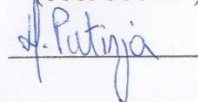 A. Putinja